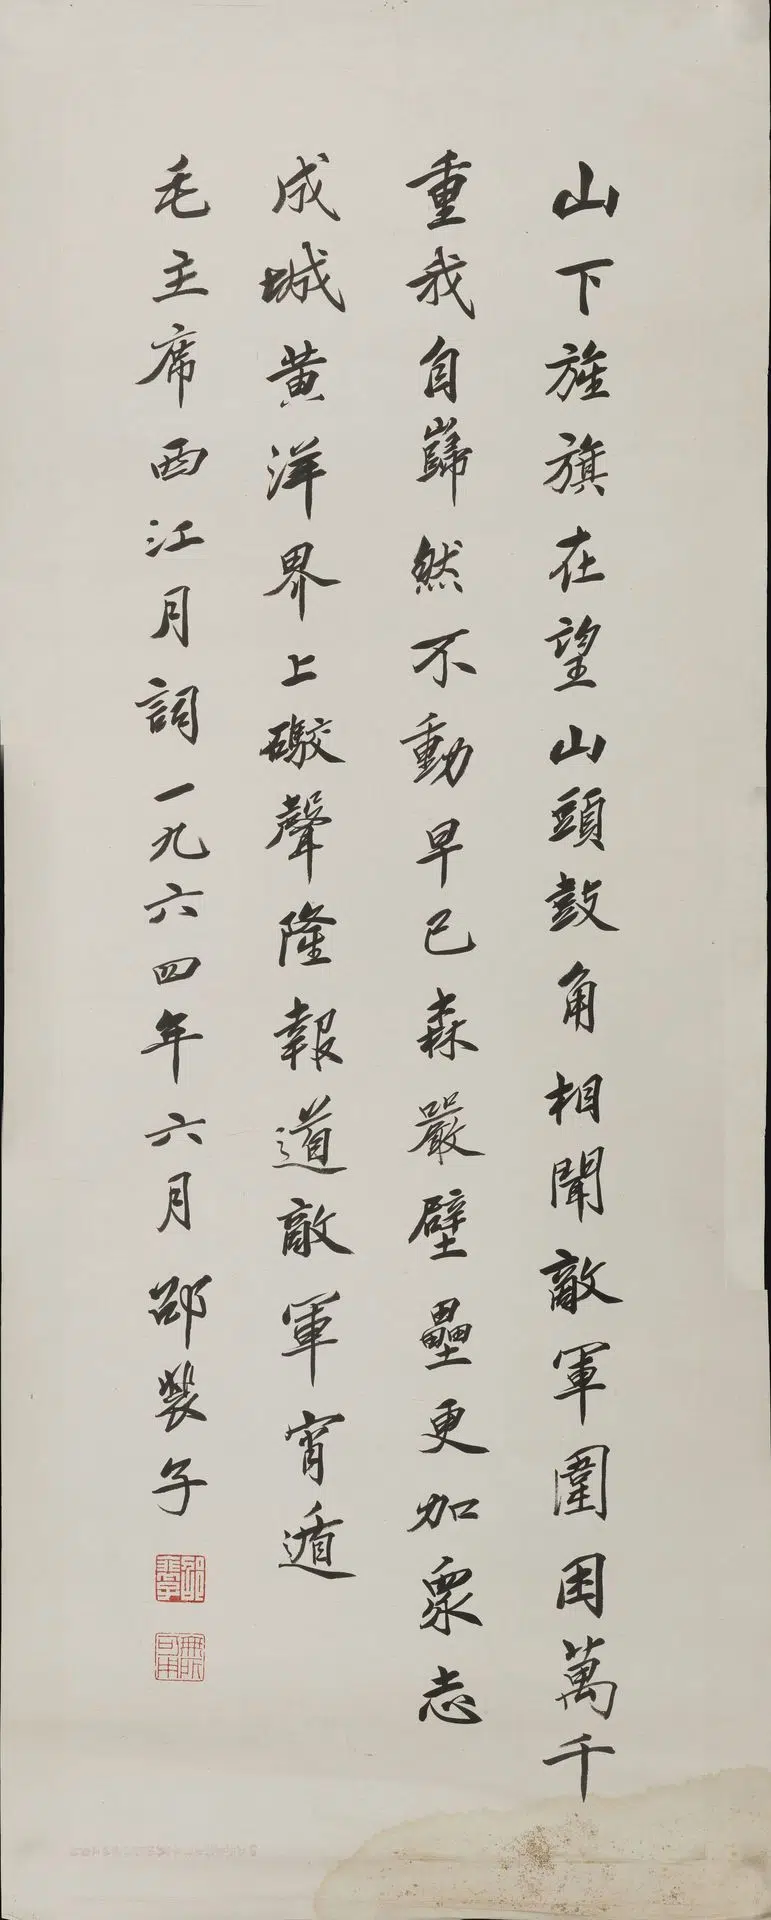 山下旌旗在望山頭鼓角相聞敵軍圍困萬千
重我自巋然不動早已森嚴壁壘更加衆志
成城黄洋界上礮聲隆報道敵軍宵遁
毛主席西江月詞一九六四年六月邵裴子